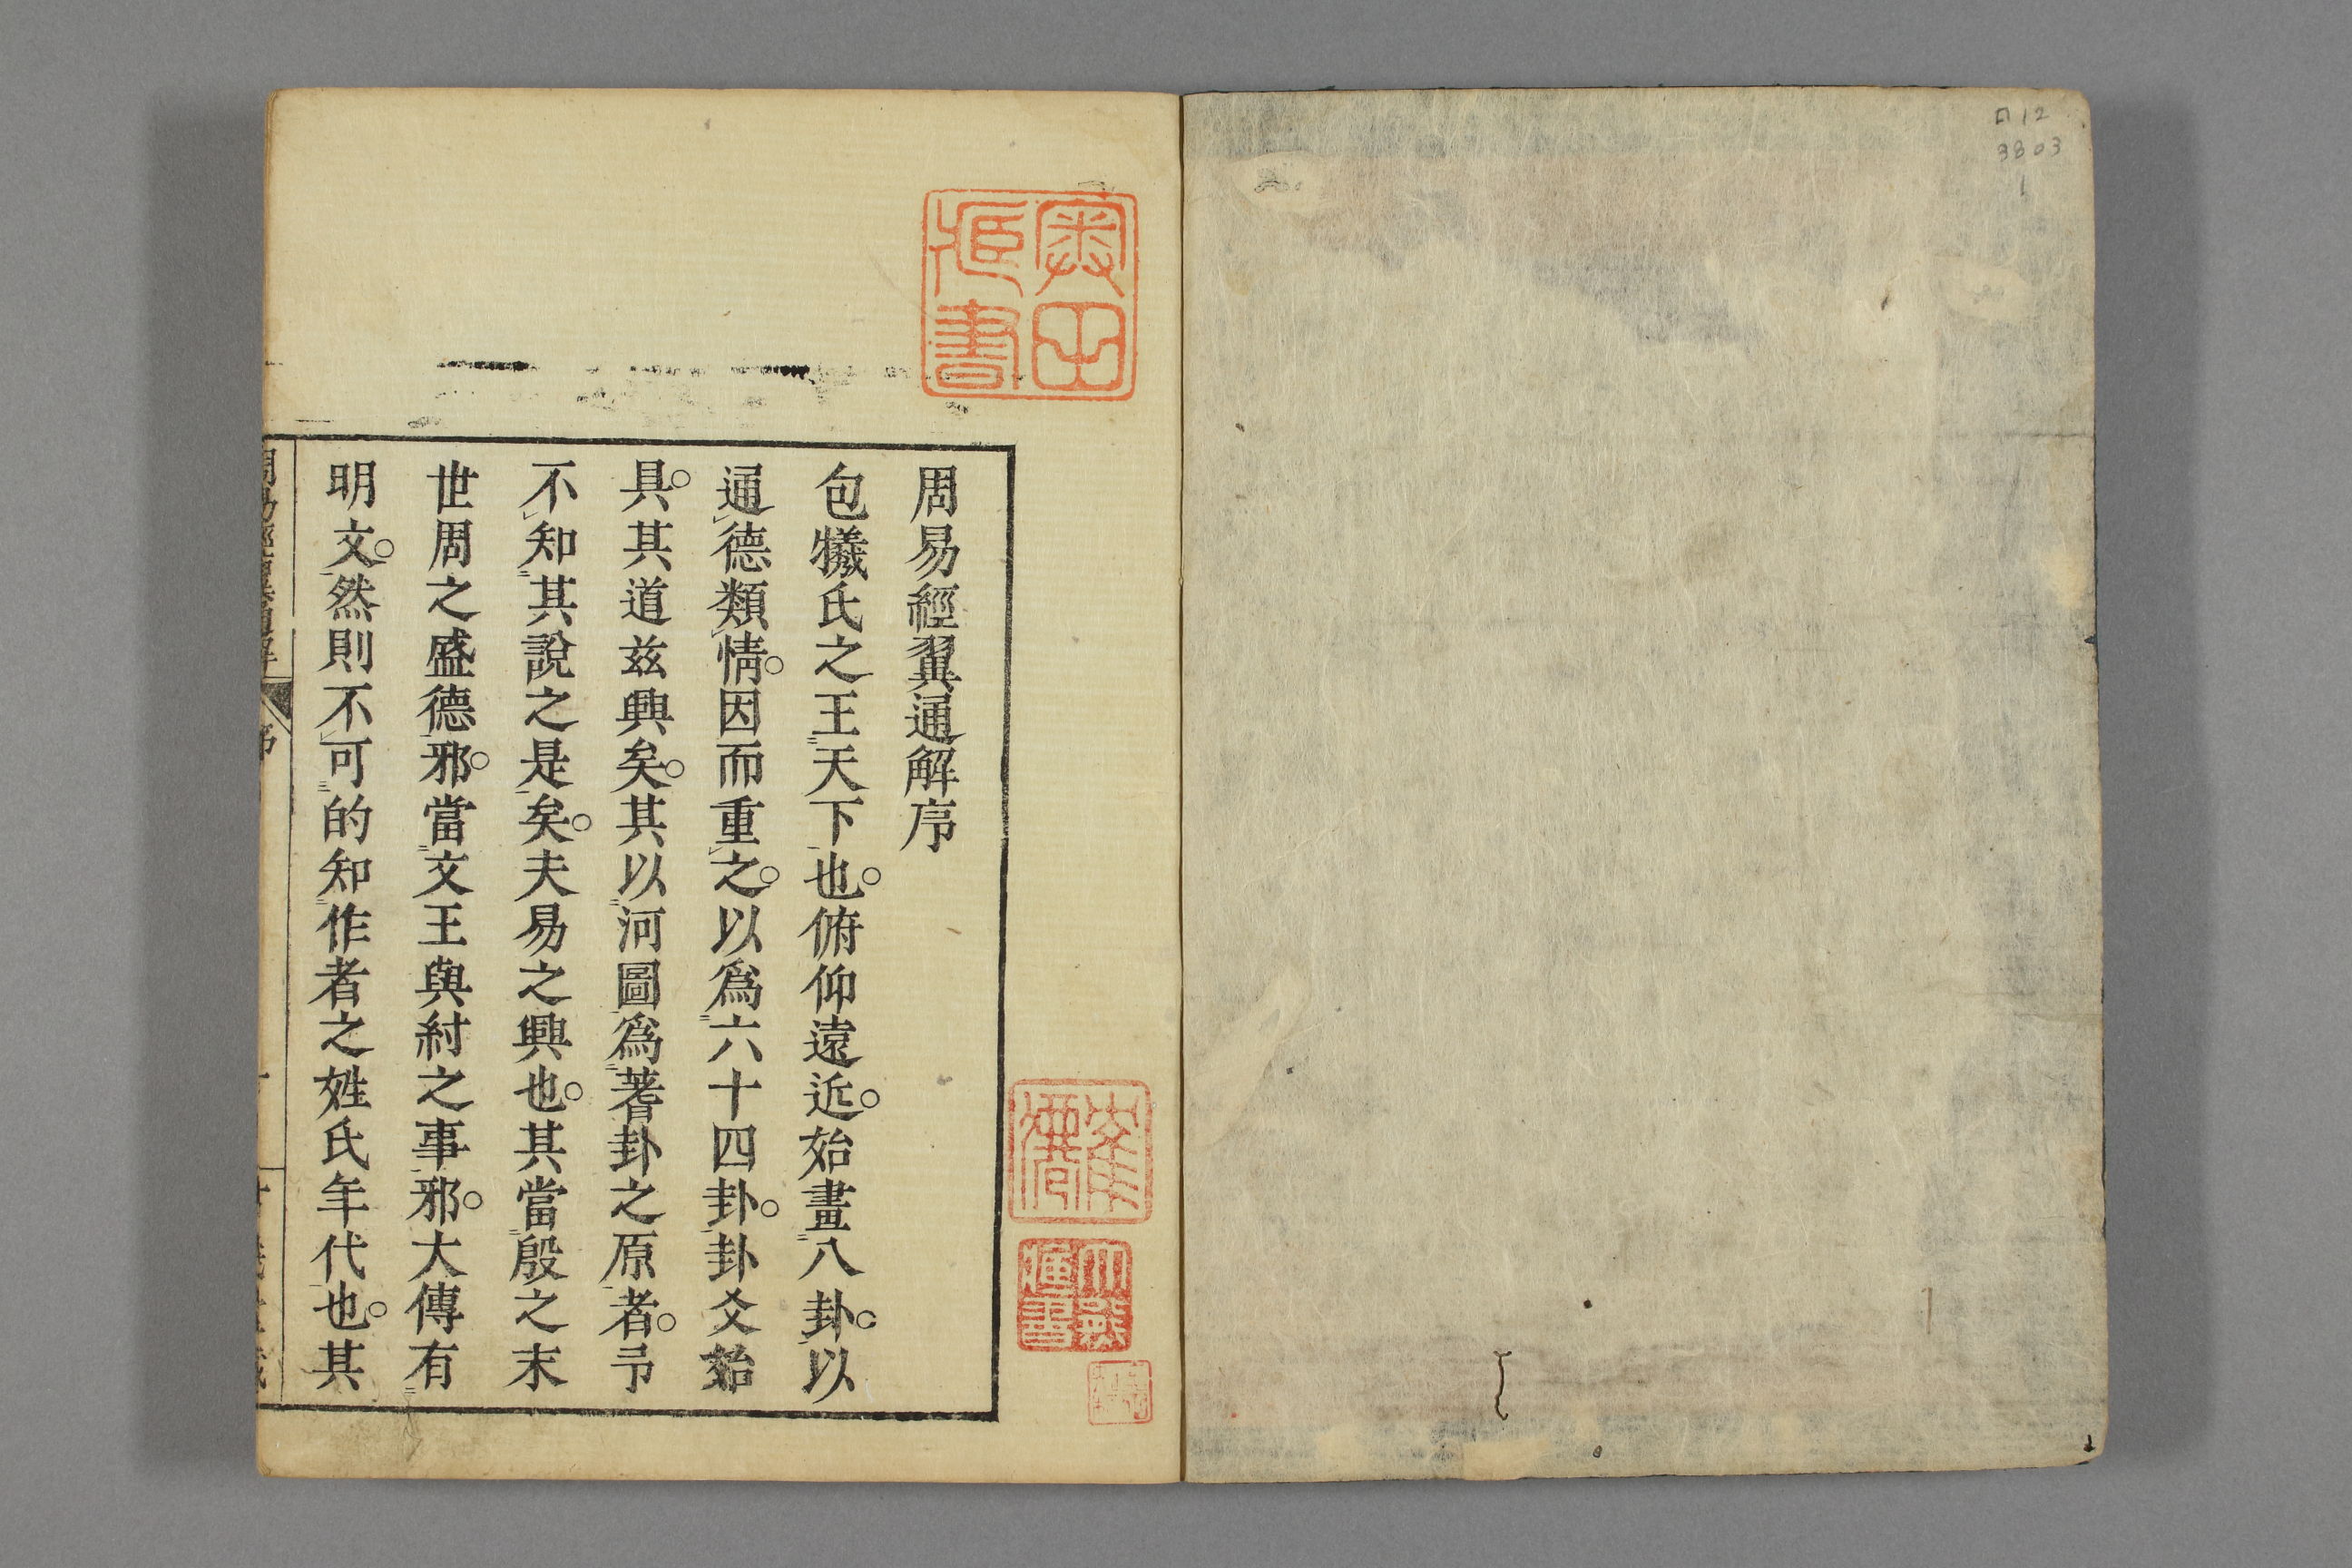 ロ12
3803
1
奥田
㧞書
周易經翼通解序
包犧氏之王天下也。俯仰遠近。始畫八卦。以
通德類情。因而重之。以爲六十四卦。卦爻始
具。其道兹興矣。其以河圖爲蓍卦之原者。予
不知其說之是矣。夫易之興也。其當殷之末
世周之盛德邪。當文王與紂之事邪。大傳有
明文。然則不可的知作者之姓氏年代也。其
周易經翼通解
序